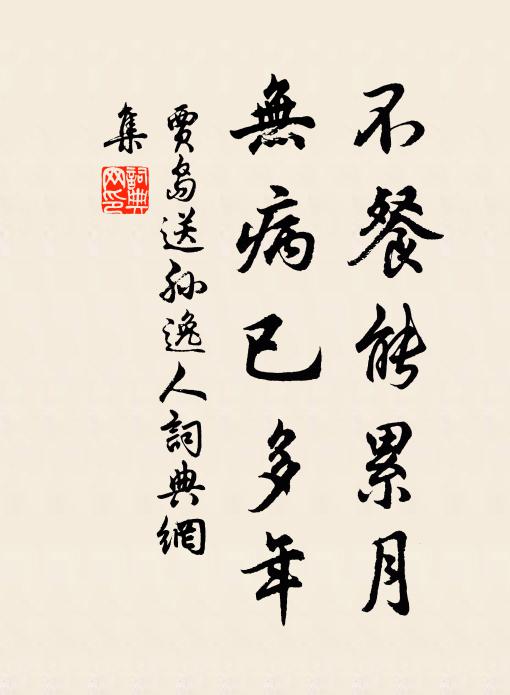 不餐能累月
無病已多年
賈島送孫逸人詞典網
集
詞典
网印